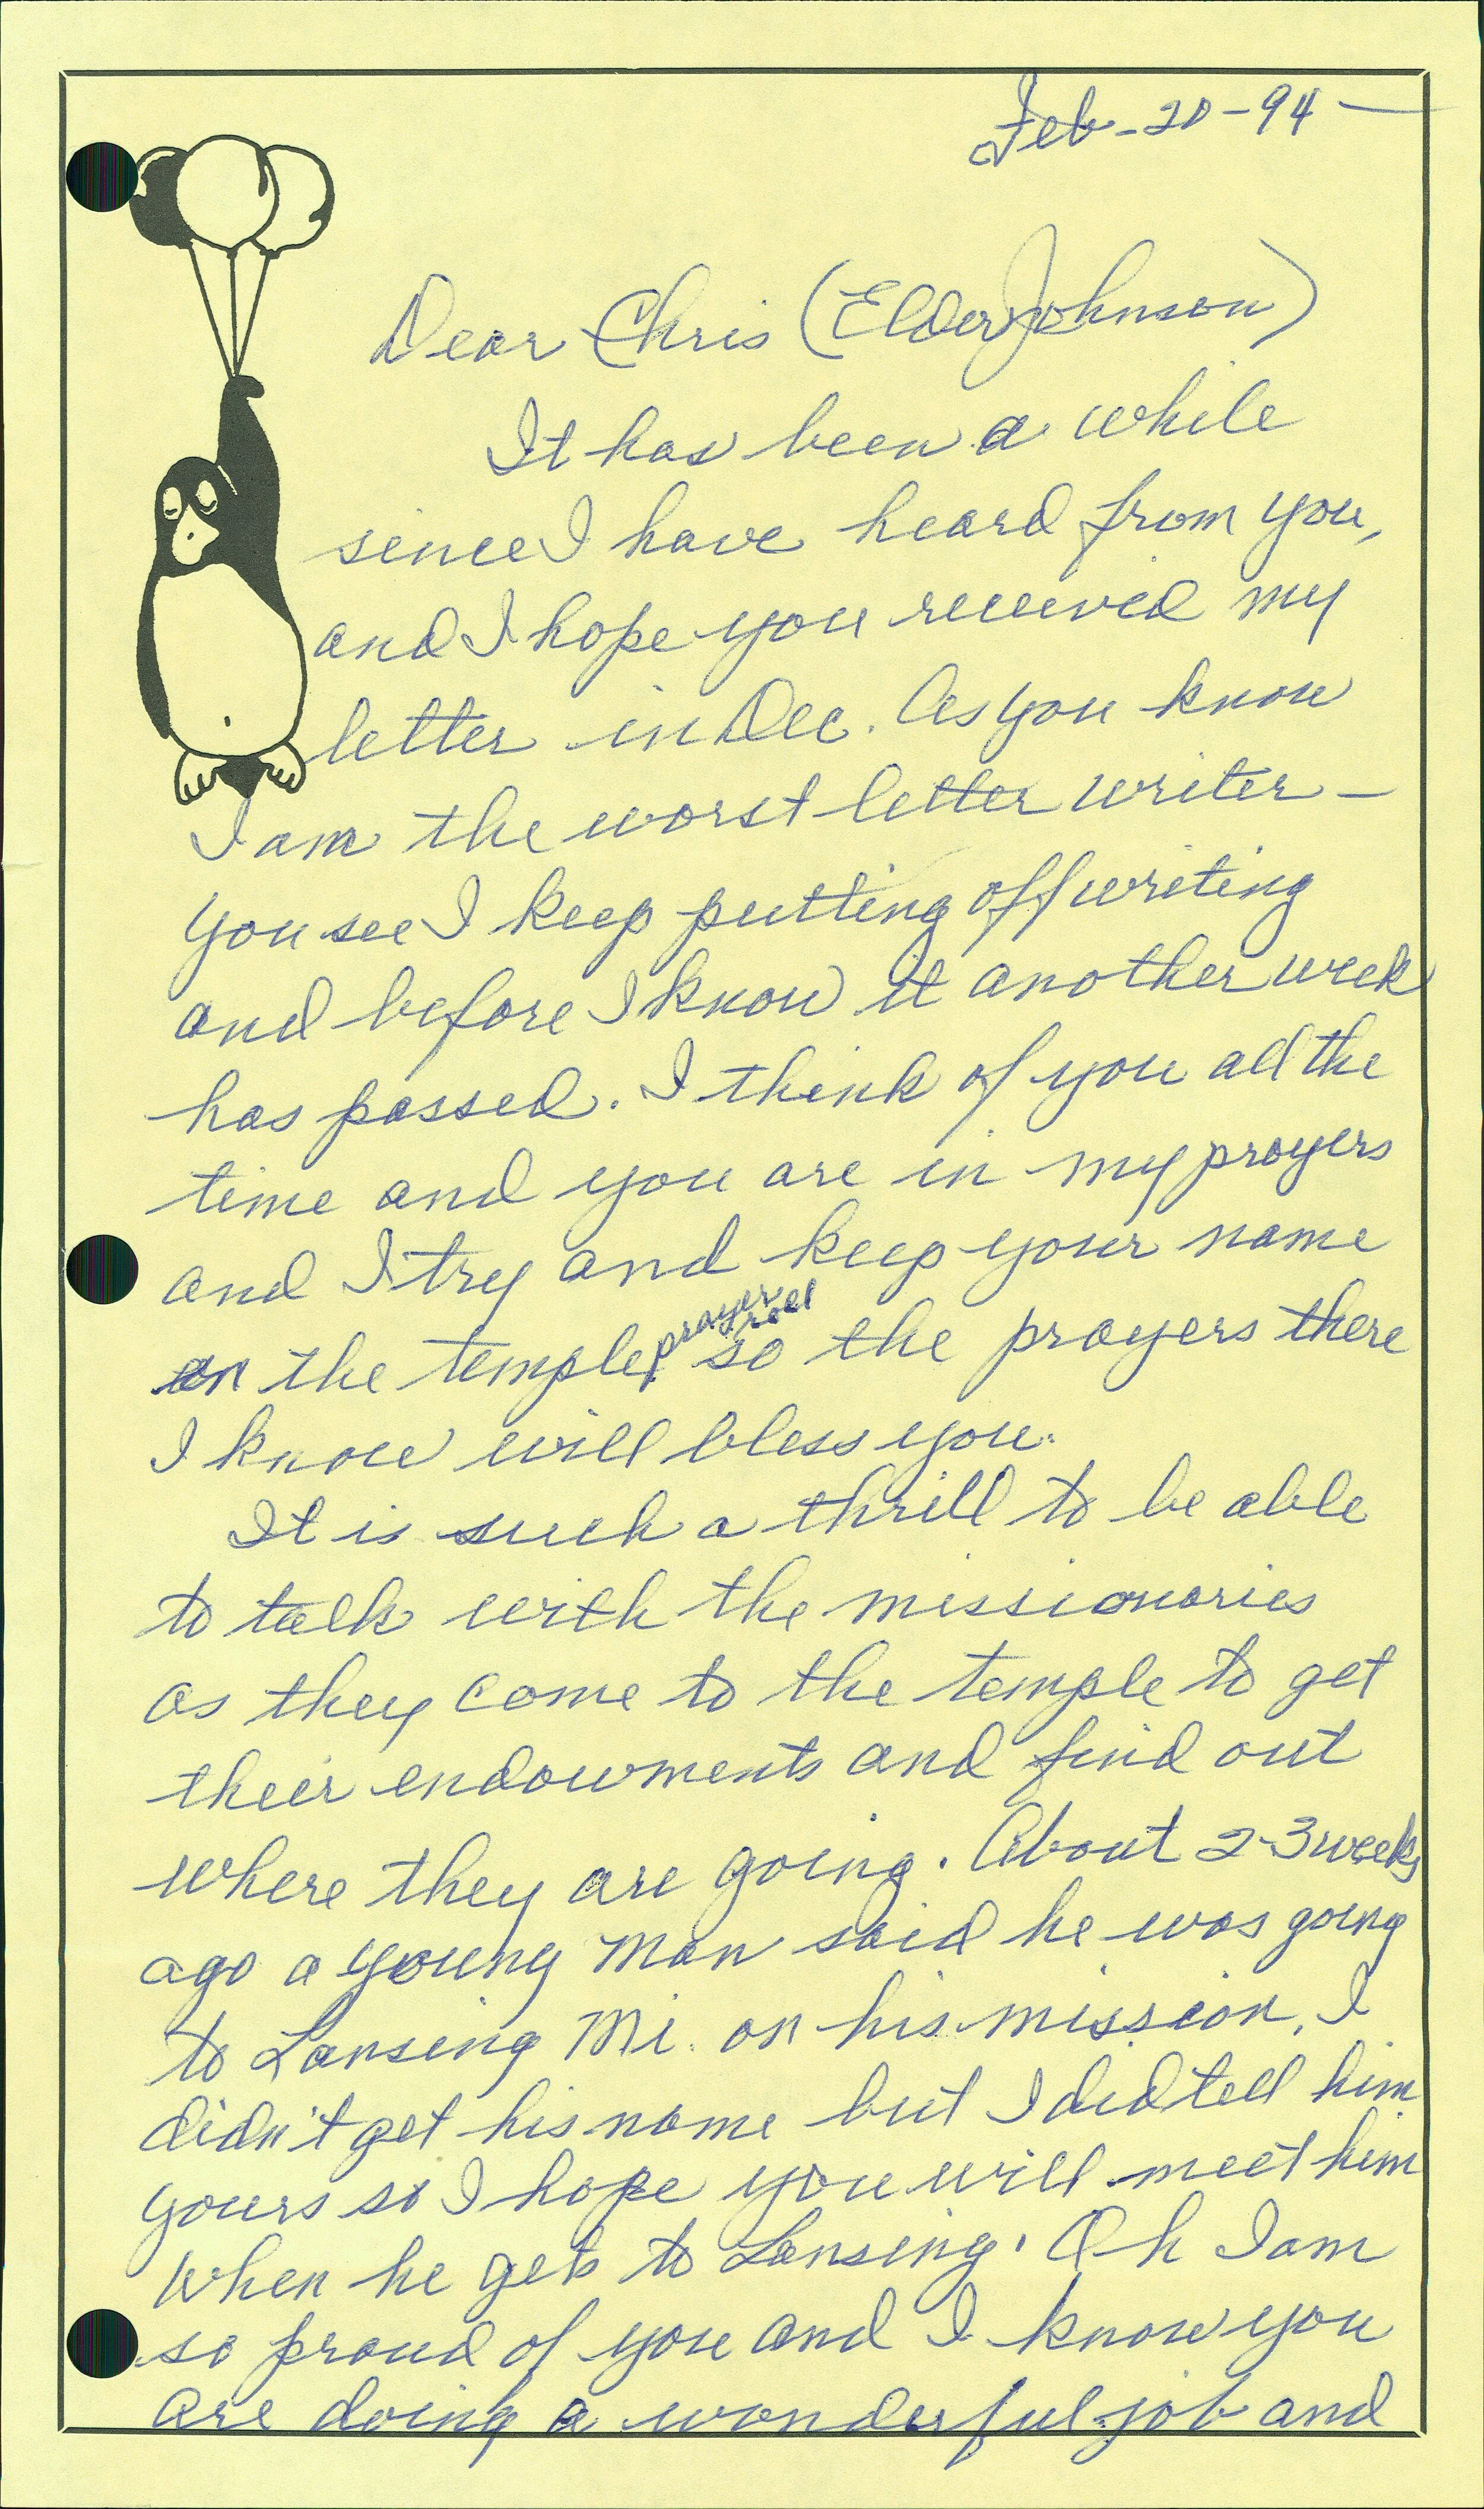 Feb-20-94-
Dear Chris (Elder Johnson)
It has been a while
since I have heard from you,
and I hope you received my
letter in Dec. As you know
I am the worst letter writer-
you see I keep putting off writing
and before I know it another week
has passed. I think of you all the
time and you are in my prayers
and I try and keep your name
on the temple prayer roll so the prayers there
I know will bless you.
It is such a thrill to be able
to talk with the missionaries
as they come to the temple to get
their endowments and find out
where they are going. About 2-3 weeks
ago a young man said he was going
to Lansing Mi. on his mission, I
didn't get his name but I did tell him
yours so I hope you will meet him
when he gets to Lansing. Oh I am
so proud of you and I know you
are doing a wonderful job and